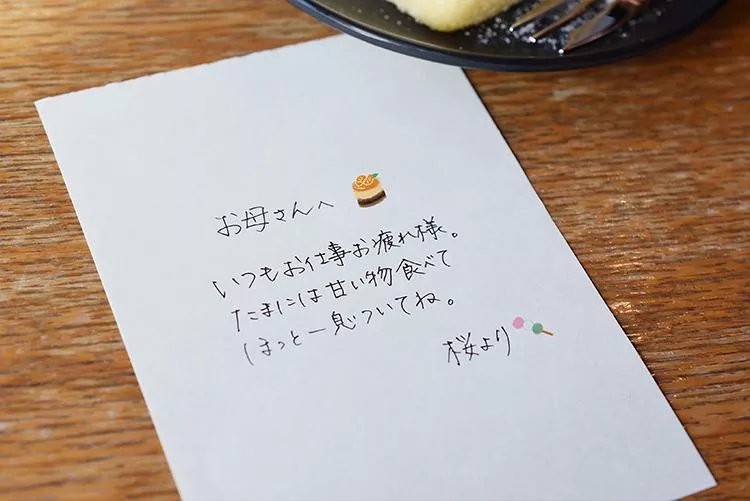 お母さんへ
いつもお仕事お疲れ様。
たまには甘い物食べて
ほっと一息ついてね。
桜より